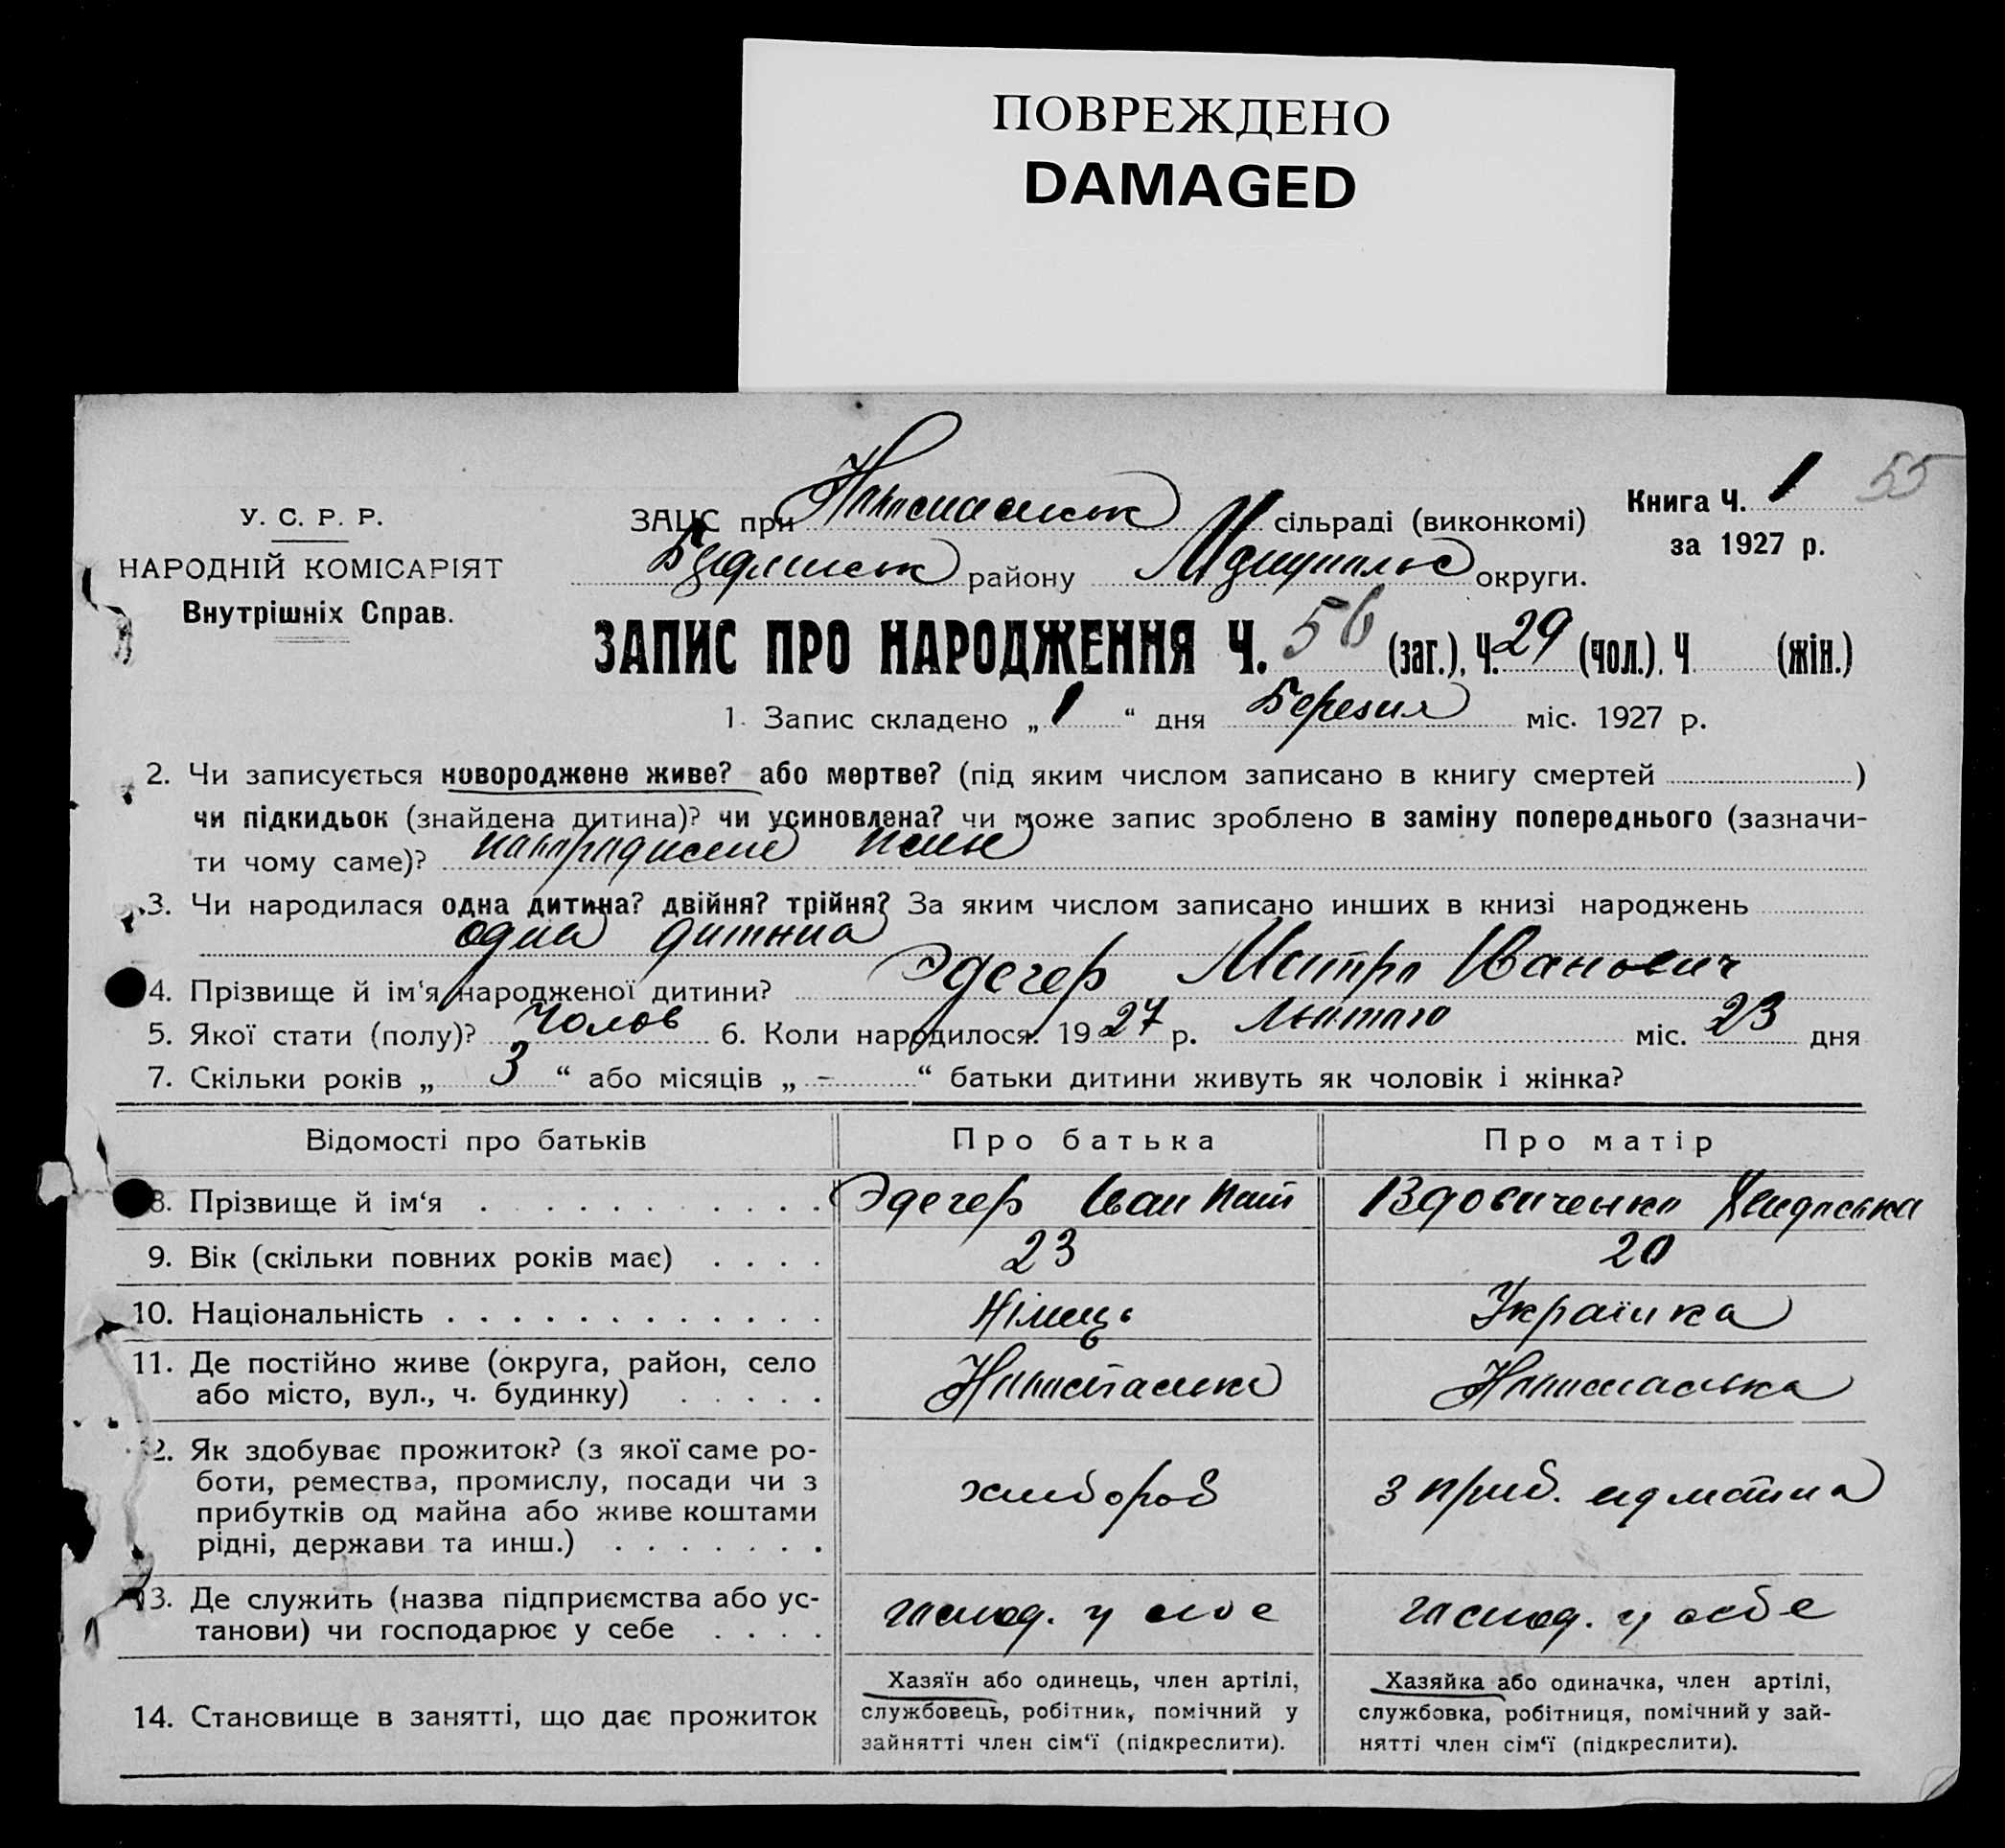 ПОВРЕЖДЕНО
DAMAGED
Книга Ч. 1 55
за 1927 р.
У. С. Р. Р.
НАРОДНІЙ КОМІСАРІЯТ
Внутрішніх Справ.
ЗАЦС при сільраді (виконкомі)
району округи.
ЗАПИС ПРО НАРОДЖЕННЯ Ч. 56 (заг.), Ч. 29 (чол.), Ч. (жін.)
1. Запис складено „ 1 “ дня Березня міс. 1927 р.
2. Чи записується новороджене живе? або мертве? (під яким числом записано в книгу смертей )
чи підкидьок (знайдена дитина)? чи усиновлена? чи може запис зроблено в заміну попереднього (зазначи-
ти чому саме)?
3. Чи народилася одна дитина? двійня? трійня? За яким числом записано инших в книзі народжень
одна дитина
4. Прізвище й ім‘я народженої дитини? Эдегер Іванович
5. Якої стати (полу)? Чолов 6. Коли народилося? 1927 р. Лютого міс. 23 дня
7. Скільки років „ 3 “ або місяців „ - “ батьки дитини живуть як чоловік і жінка?
Відомості про батьків Про батька Про матір
8. Прізвище й ім‘я Эдегер Іван Вдовиченко
9. Вік (скільки повних років має) 23 20
10. Національність Німець Українка
11. Де постійно живе (округа, район, село
або місто, вул., ч. будинку)
12. Як здобуває прожиток? (з якої саме ро-
боти, ремества, промислу, посади чи з
прибутків од майна або живе коштами
рідні, держави та инш.) хлібороб з приб.
13. Де служить (назва підприємства або ус-
танови) чи господарює у себе господ. у себе господ. у себе
14. Становище в занятті, що дає прожиток
Хазяїн або одинець, член артілі,
службовець, робітник, помічний у
зайнятті член сім‘ї (підкреслити).
Хазяйка або одиначка, член артілі,
службовка, робітниця, помічний у зай-
нятті член сім‘ї (підкреслити).